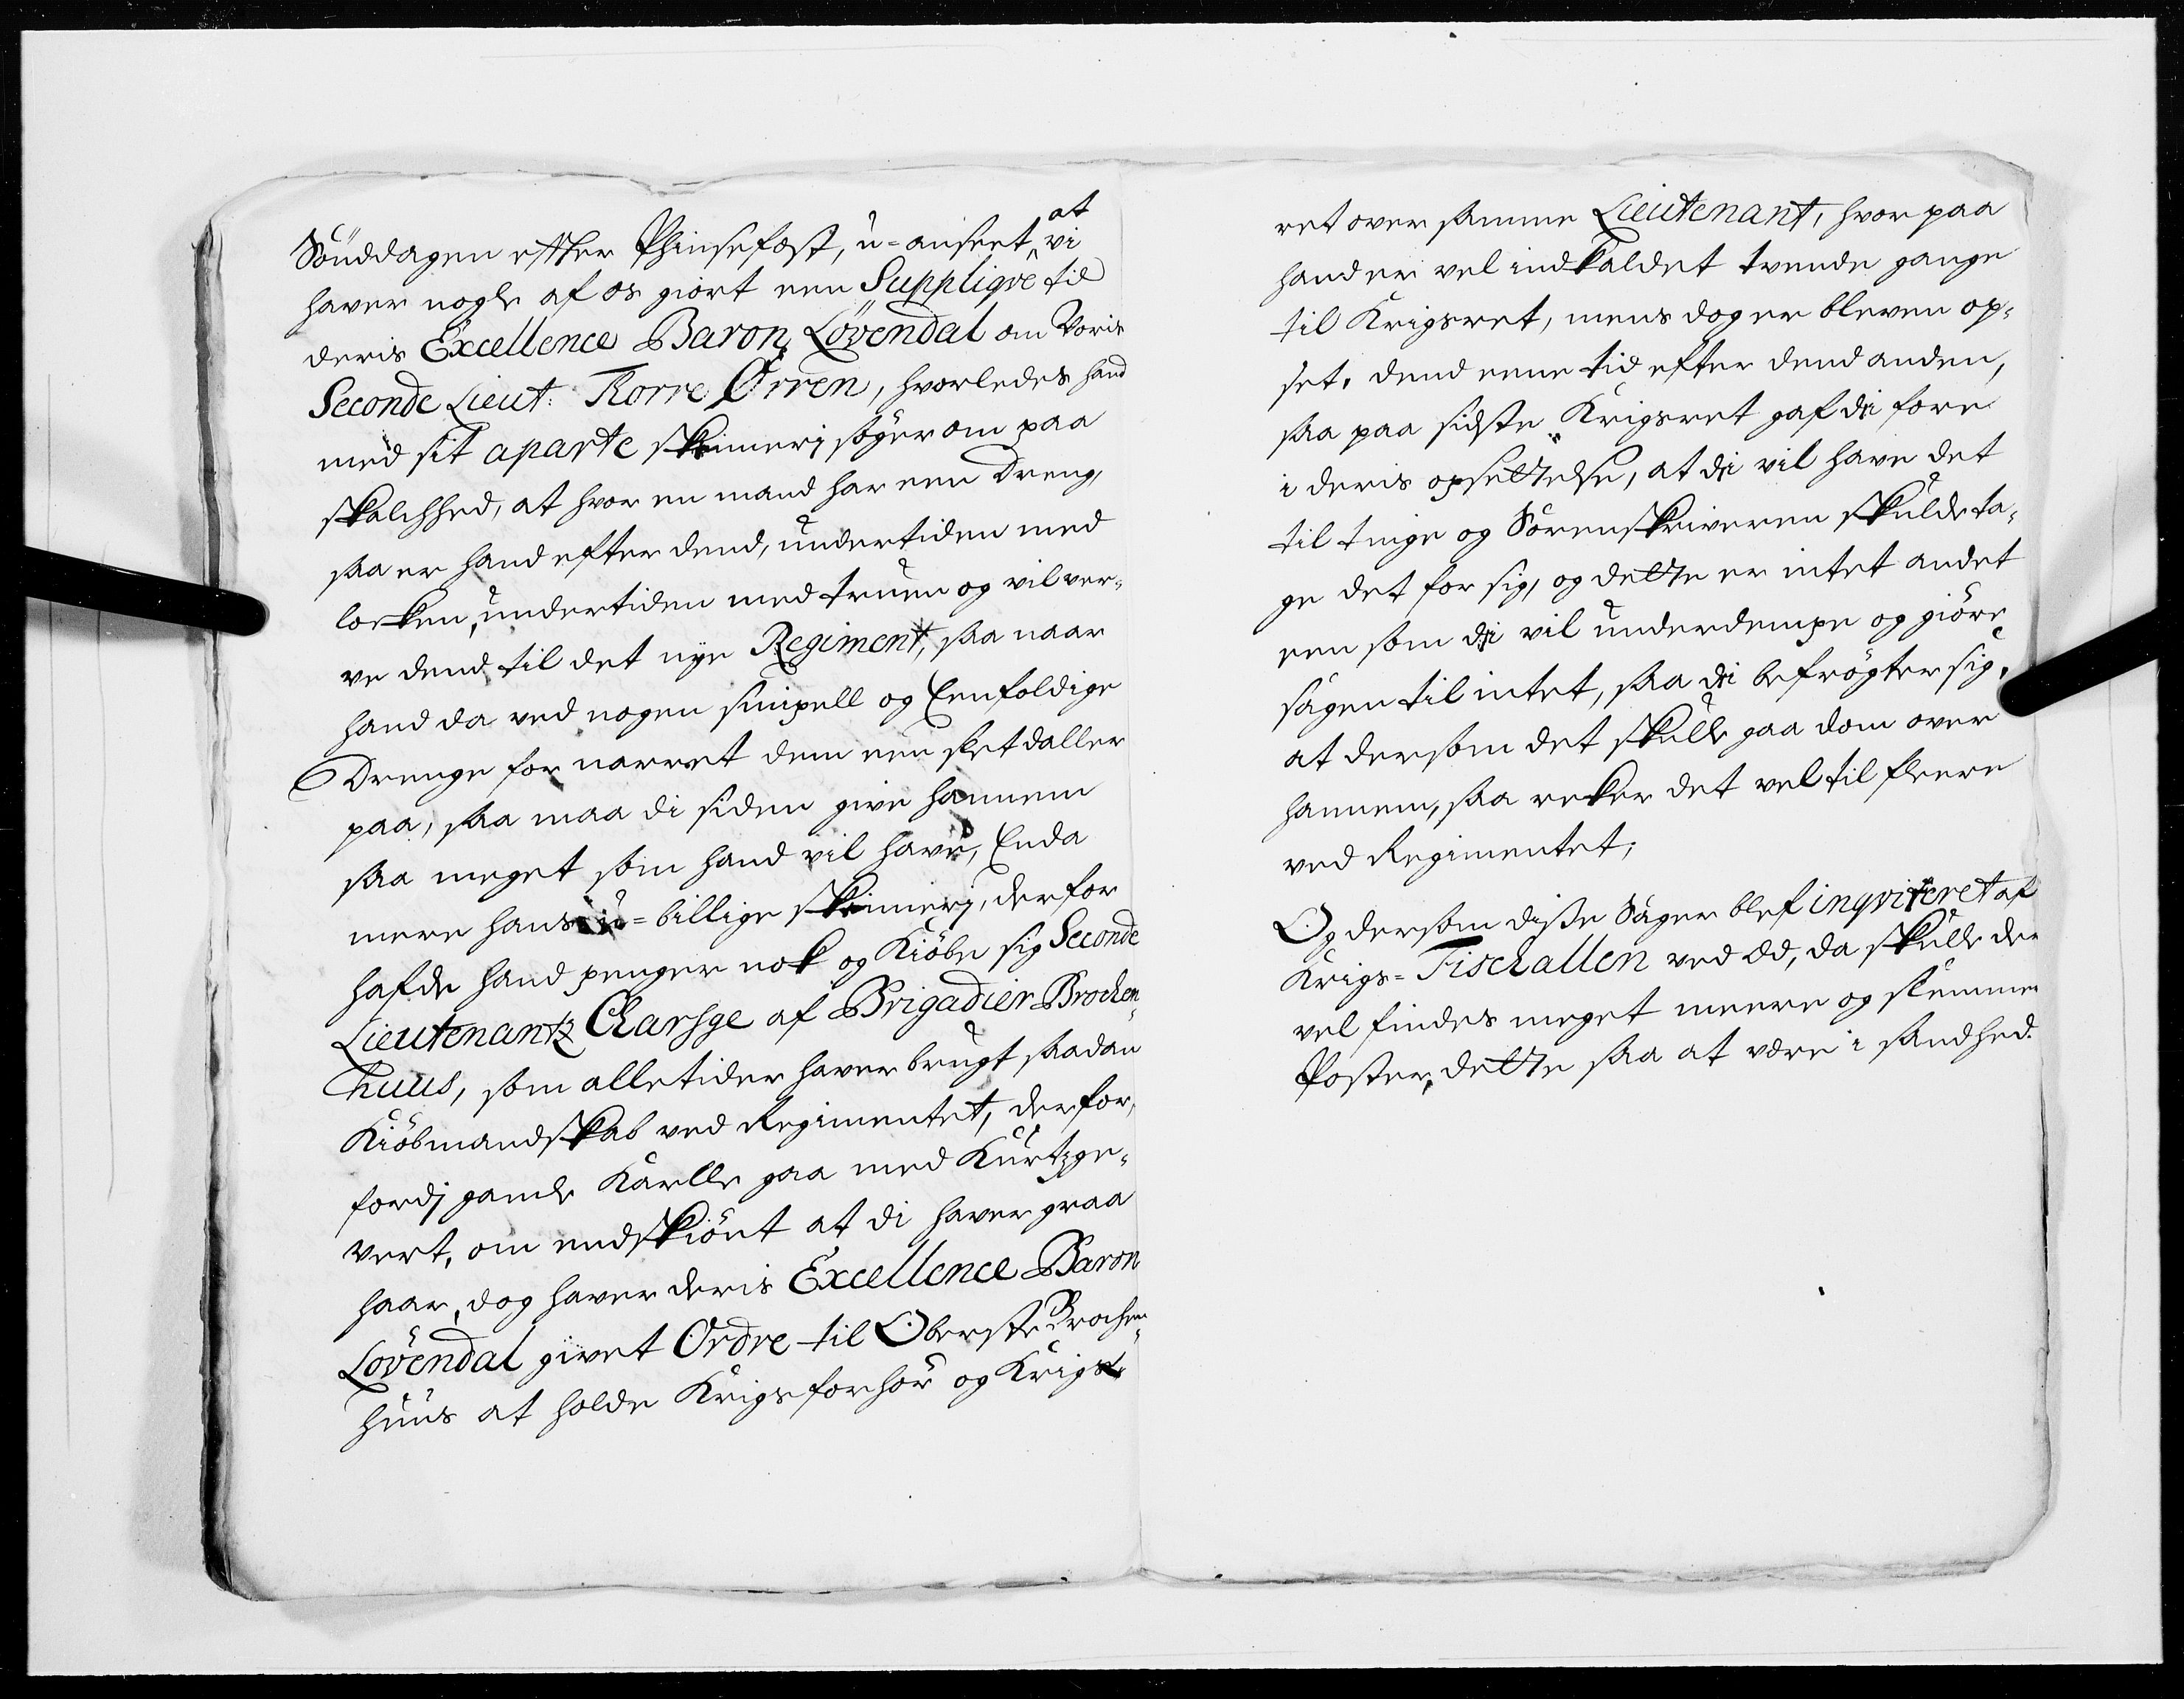 Sönddagen effter Phinsefæst, u-anseet, at vi
haver nogle af os giort een Supplique til
deris Excellence Baron Lövendal om Voris
Seconde Lieut: Torre Ørren, hvorledes hand
med sit aparte skinnerj söger om paa
skalchhed, at hvor en mand har een Dreng,
saa er hand efter dend, undertiden med
locken, undertiden med truen og vil ver-
ve dend til det nye Regiment, saa naar
hand da ved nogen simpell og Eenfoldige
Drenge for narret dem een sletdaller
paa, saa maa di siden give hannem
saa meget som hand vil have, Enda
mere hans u-billige skinnerj, derfor
hafde hand penger nok og Kiöbe sig Seconde
Lieutenantz Charsge af Brigadier Brochen-
huus, som alletider haver brugt saadan
Kiöbmandskab ved Regimentet, derfor,
fordj gamle Karlle gaa med Kurtzge-
vert, om endskiönt at di haver graa
haar, dog haver deris Excellence Baron
Lövendal givet Ordre til Oberste Brochen-
huus at holde Krigsforhör og Krigs-
ret over samme Lieutenant, hvor paa
hand er vel indkaldet tvende gange
til Krigsret, mens dog er bleven op-
set, dend eene tid efter dend anden,
saa paa sidste Krigsret gaf di fore
i deris opsettelse, at di vil have det
til tinge og Sörenskriveren skulde ta-
ge det for sig, og dette er intet andet
een som di vil underdempe og giöre
sagen til intet, saa di befrögter sig,
at dersom det skulle gaa dom over
hannem, saa reker det vel til fleere
ved Regimentet;
Og dersom disse Sager blef inqviteret af
Krigs-Fischallen ved æd, da skulle der
vel findes meget meere og slemmer
Poster, dette saa at være i sandhed.